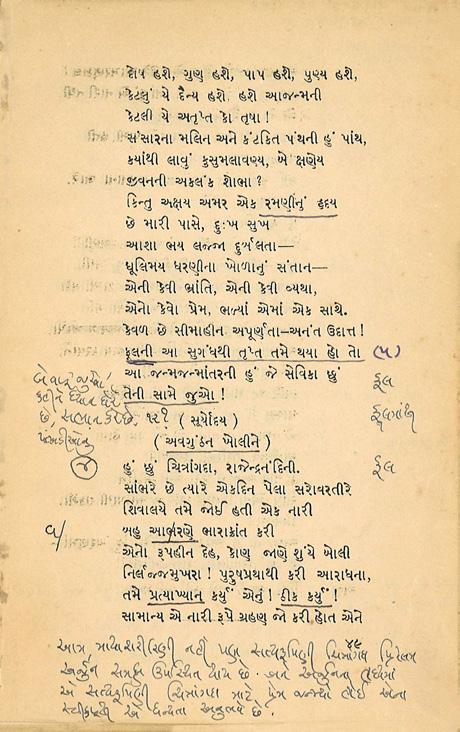 દોષ હશે, ગુણ હશે, પાપ હશે, પુણ્ય હશે,
કેટલું યે દૈન્ય હશે હશે આજન્મની
કેટલી યે અતૃપ્ત કો તૃષા !
સંસારના મલિન અને કંટકિત પંથની હું પાંથ,
કયાંથી લાવું કુસુમલાવણ્ય, બે ક્ષણેય
જીવનની અકલંક શોભા ?
કિન્તુ અક્ષય અમર એક રમણીનું હૃદય
છે મારી પાસે, દુઃખ સુખ
આશા ભય લજ્જા દુર્બલતા—
ધૂલિમય ધરણીના ખોળાનું સંતાન—
એની કેવી ભ્રાંતિ, એની કેવી વ્યથા,
એનો કેવો પ્રેમ, ભળ્યાં એમાં એક સાથે.
કેવળ છે સીમાહીન અપૂર્ણતા–અનંત ઉદાત્ત !
ફૂલની આ સુગંધથી તૃપ્ત તમે થયા હો તો (૫)
આ જન્મજન્માંતરની હું જે સેવિકા છું ફૂલ
તેની સામે જુઓ !
( સૂર્યોદય ) ફૂલમાંથી
( અવગુંઠન ખોલીને )
હું છું ચિત્રાંગદા, રાજેન્દ્રનંદિની. ફૂલ
સાંભરે છે ત્યારે એકદિન પેલા સરોવરતીરે
શિવાલયે તમે જોઈ હતી એક નારી
બહુ આભરણે ભારાક્રાંત કરી
એનો રૂપહીન દેહ, કોણ જાણે શું યે બોલી
નિર્લજ્જમુખરા ! પુરુષપ્રથાથી કરી આરાધના,
તમે પ્રત્યાખ્યાન કર્યું એનું ! ઠીક કર્યું !
સામાન્ય એ નારી રૂપે ગ્રહણ જો કરી હોત એને
૪૯
આમ, માયાશરીરિણી નહીં પણ સત્યરૂપિણી ચિત્રાંગદા
અર્જુન સમક્ષ ઉપસ્થિત થાય છે. અને અર્જુનના હૃદયમાં
એ સત્યરૂપિણી ચિત્રાંગદા માટે પ્રેમ હોઈ એના
એ ધન્યતા અનુભવે છે.